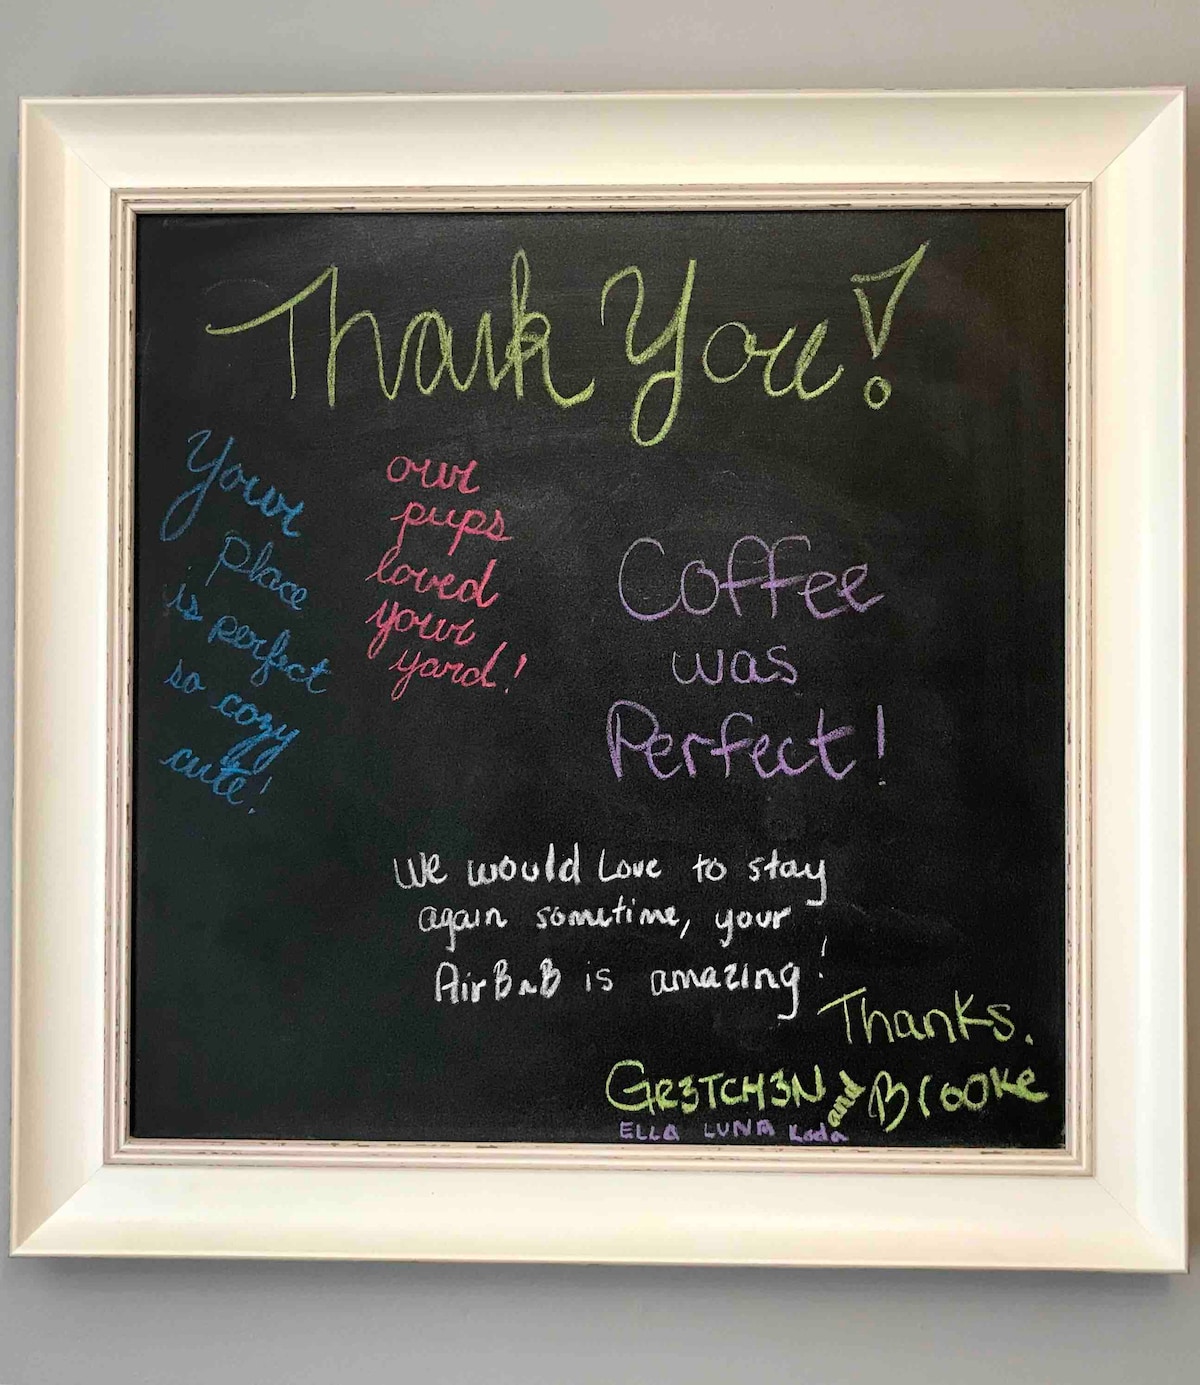 Thank You!
Your
Place
is perfect
so cozy
cute!
our
pups
loved
your
yard!
Coffee
was
Perfect!
We would Love to stay
again sometime, your
AirBnB is amazing!
Thanks.
GR3TCH3N and BrooKe
ELLA LUNA Koda